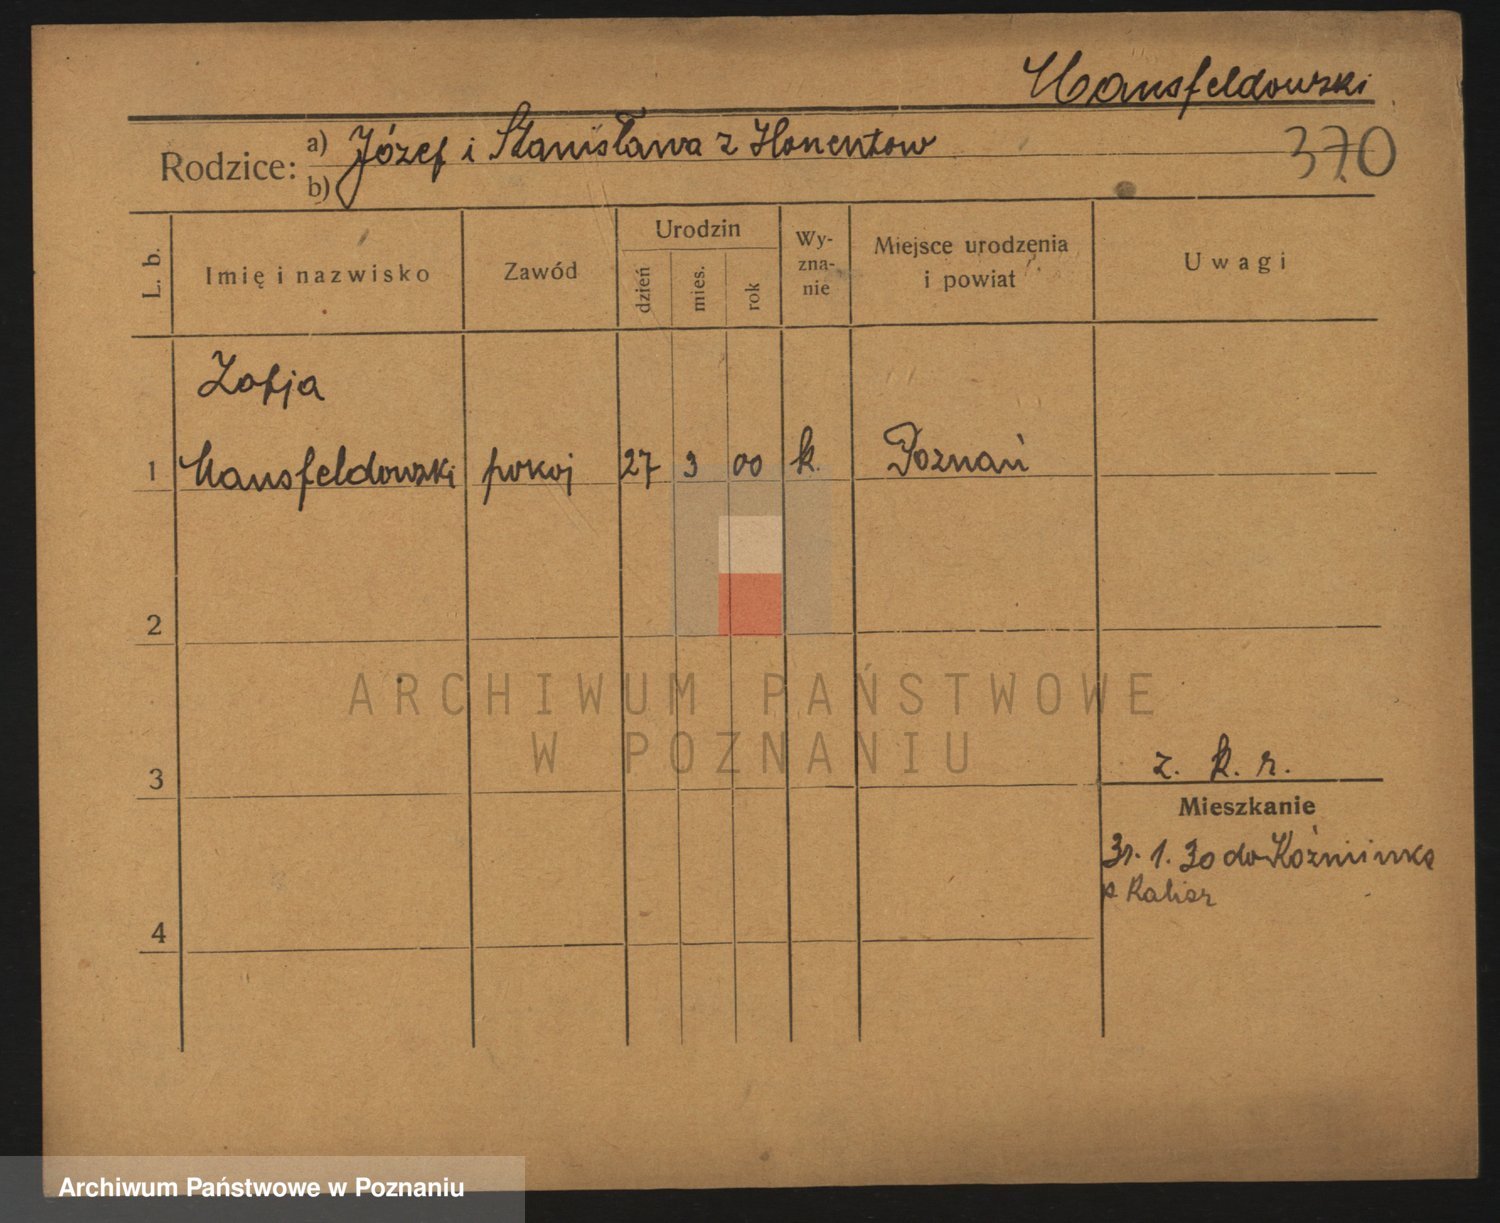 Mansfeldowski
370
Rodzice: a) Józef i Stanisława z
b)
L. b.
Imię i nazwisko
Zawód
Urodzin
dzień
mies.
rok
Wy-
zna-
nie
Miejsce urodzenia
i powiat
Uwagi
Zofja
1 Mansfeldowski pokoj 27 3 00 k. Poznań
2
ARCHIWUM PAŃSTWOWE
W POZNANIU
z. k. r.
3
Mieszkanie
31. 1. 30 do Koźminka
p Kalisz
4
Archiwum Państwowe w Poznaniu